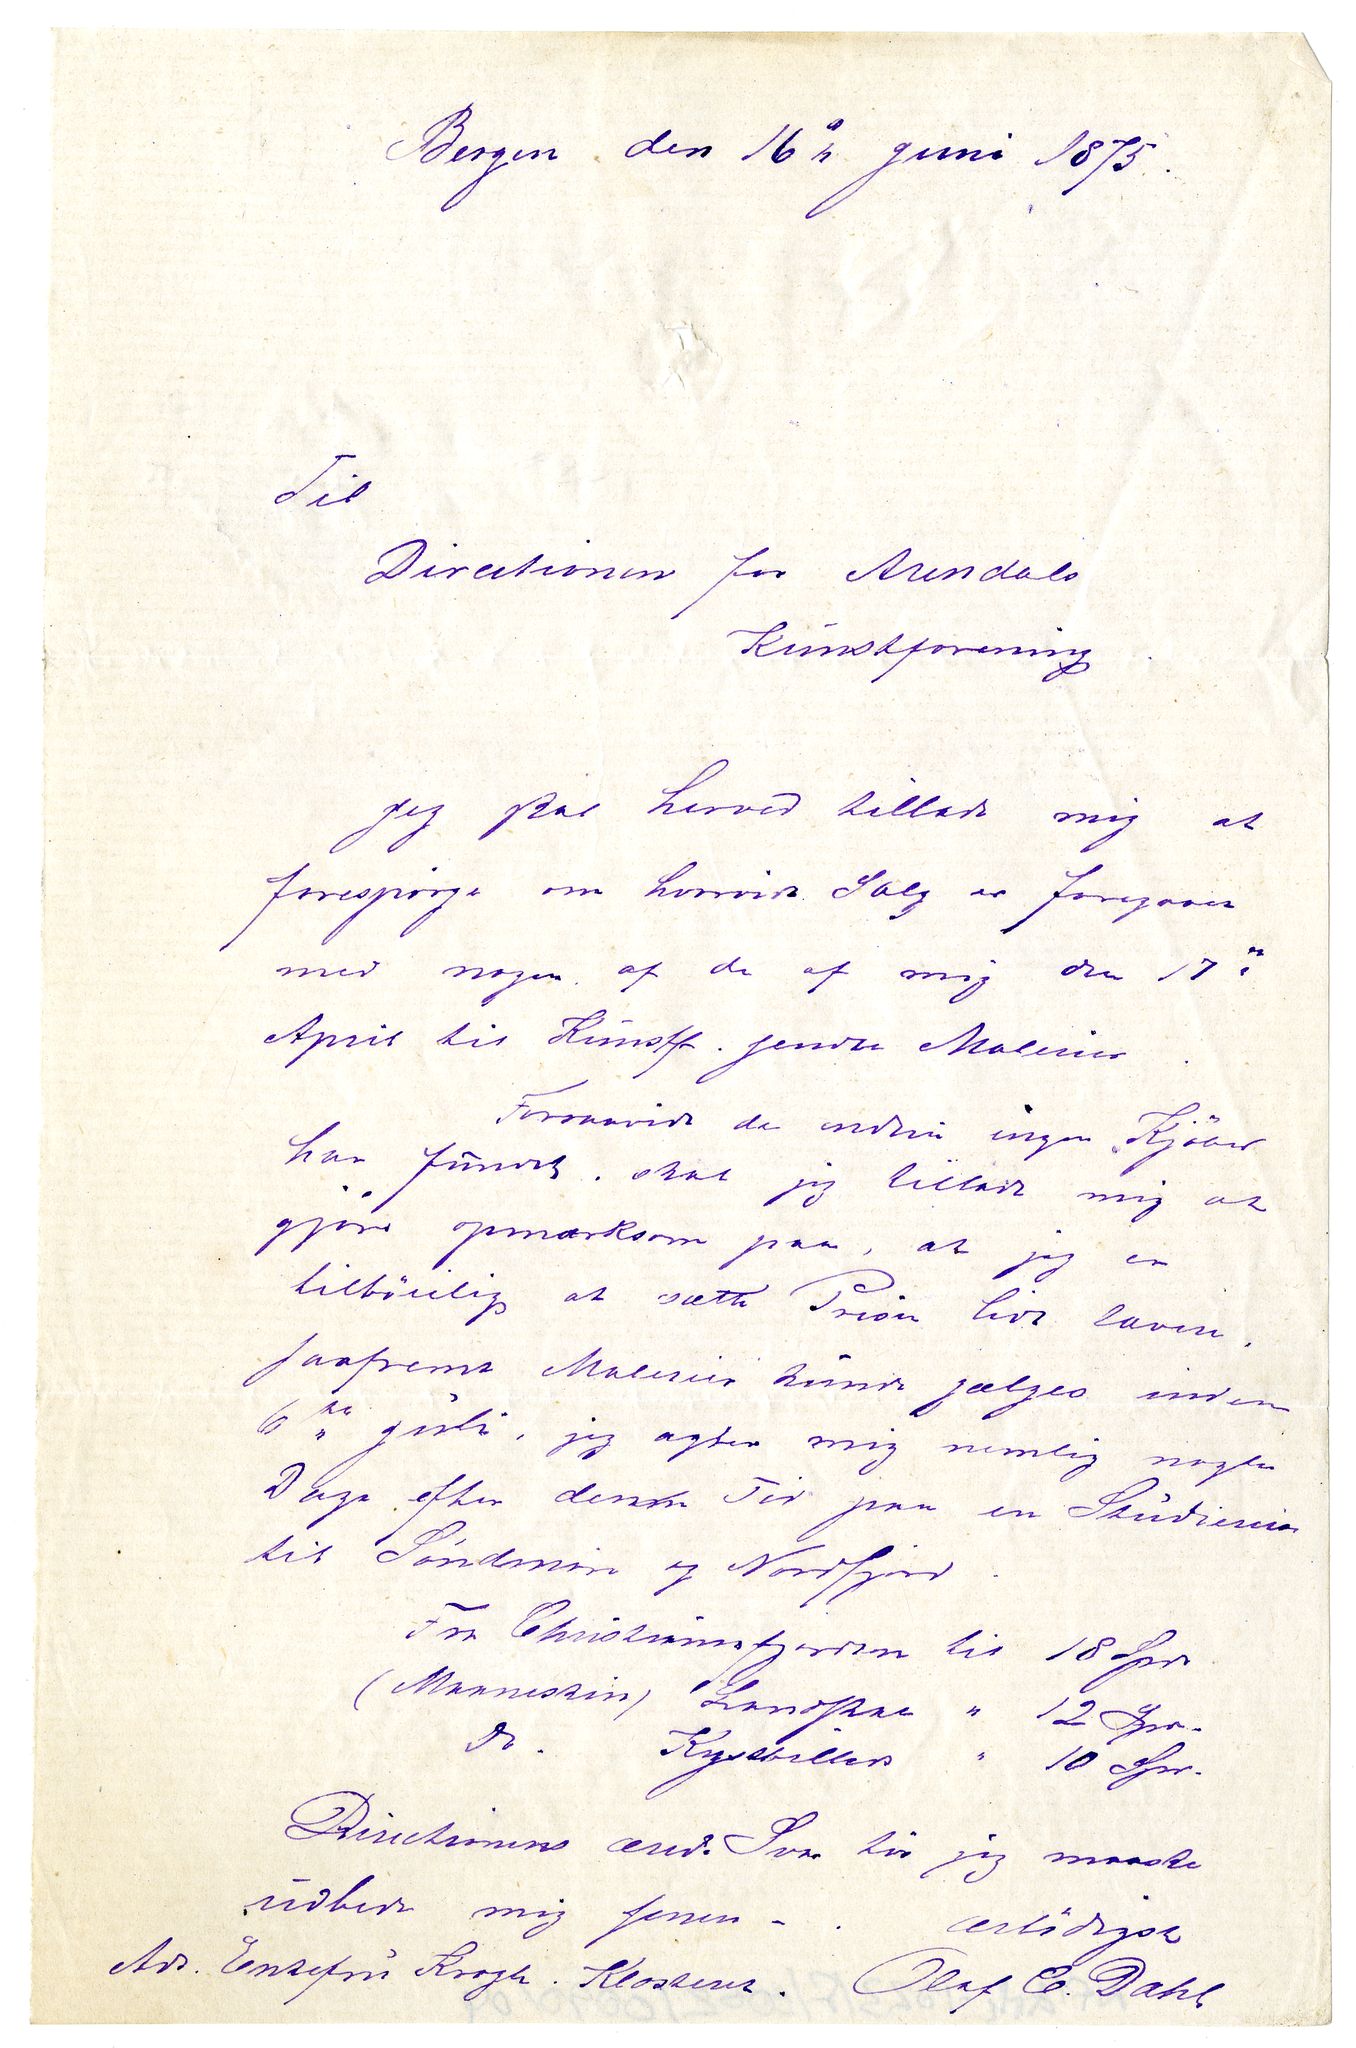 Bergen den 16de Juni 1875.
Til
Directionen for Arendals
Kunstforening
Jeg skal herved tillade mig at
forespörge om hvorvidt Salg er foregaaet
med nogen af de af mig den 17de
April til Kunstf. sendte Malerier.
Forsaavidt de endnu ingen Kjöber
har fundet, skal jeg tillade mig at
gjöre opmærksom paa, at jeg er
tilböielig at sætte Prisen lidt lavere,
saafremt Malerier kunde sælges inden
6te Juli, jeg agter mig nemlig nogle
Dage efter denne Tid paa en Studiereise
til Söndmöre og Nordfjord.
Fra Christianiafjorden til 18 Spd
(Maaneskin) Landskab " 12 Spd.
Do. Kystbillede " 10 Spd.
Directionens ærede Svar tör jeg maaske
udbede mig snarest. ærbödigst
Adr. Enkefru Krogh. Klosteret. Olaf E. Dahl